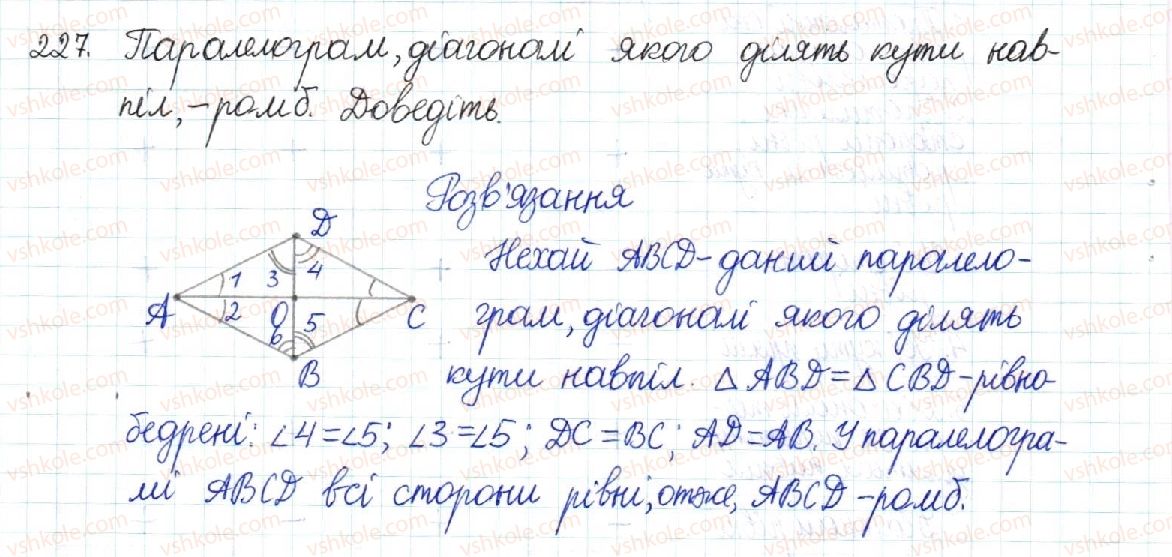 227. Паралелограм, діагоналі якого ділять кути нав-
піл, - ромб. Доведіть.
Розв'язання
D
1 3 4
A 2 O 5 C
6
B
Нехай ABCD - даний паралело-
грам, діагоналі якого ділять
кути навпіл. △ ABD = △ CBD - рівно
бедрені: ∠4 = ∠5; ∠3 = ∠5; DC = BC; AD = AB. У паралелогра-
мі ABCD всі сторони рівні, отже, ABCD - ромб.